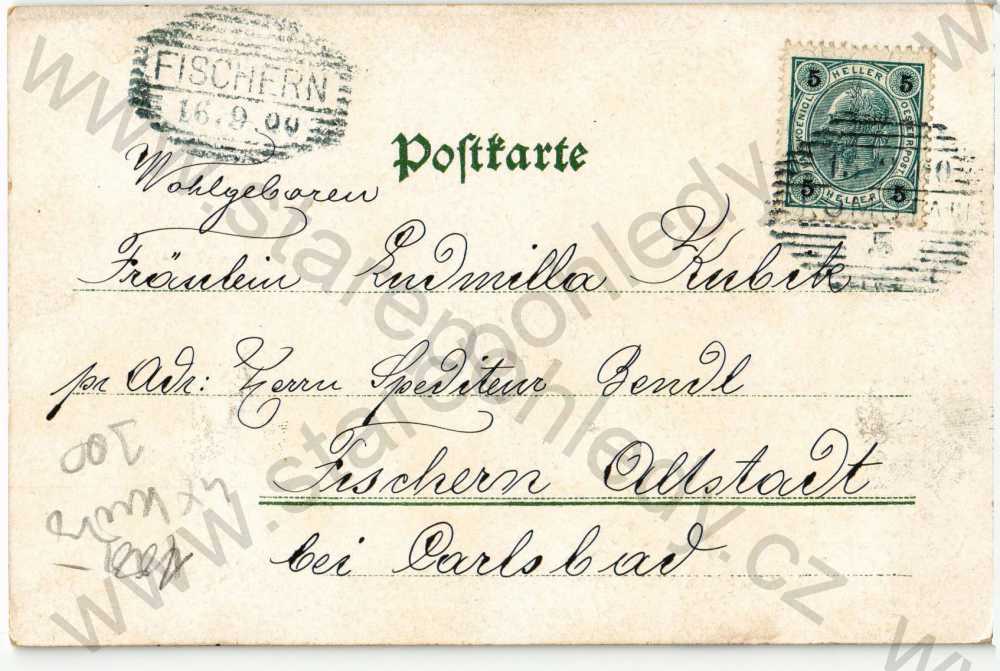 FISCHERN
16.9.00
5 HELLER 5
5 HELLER 5
Postkarte
Wohlgeboren
Fräulein Ludmilla Kubik
pr Adr: Herrn Spediteur Bendl
Fischern Altstadt
bei Carlsbad
700
www.starepohledy.cz